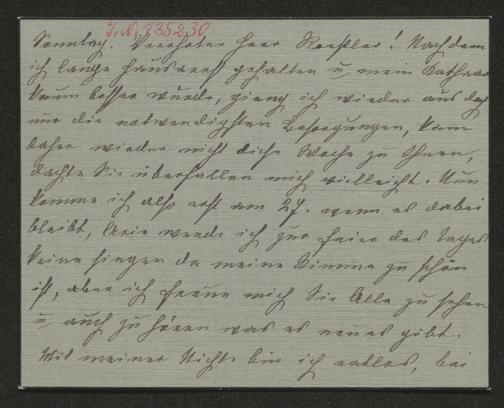 J. N. 135230
Sonntag. Verehrter Herr Roessler! Nachdem
ich lange Hausarrest gehalten u. mein Katharr
kaum besser wurde, gieng ich wieder aus doch
nur die notwendigsten Besorgungen, kam
daher wieder nicht diese Woche zu Ihnen,
dachte Sie überfallen mich vielleicht. Nun
komme ich also erst am 27. wenn es dabei
bleibt, Arie werde ich zur Feier des Tages
keine singen da meine Stimme zu schön
ist, aber ich freue mich Sie Alle zu sehen
u. auch zu hören was es neues gibt.
Mit meiner Nichte bin ich ratlos, bei